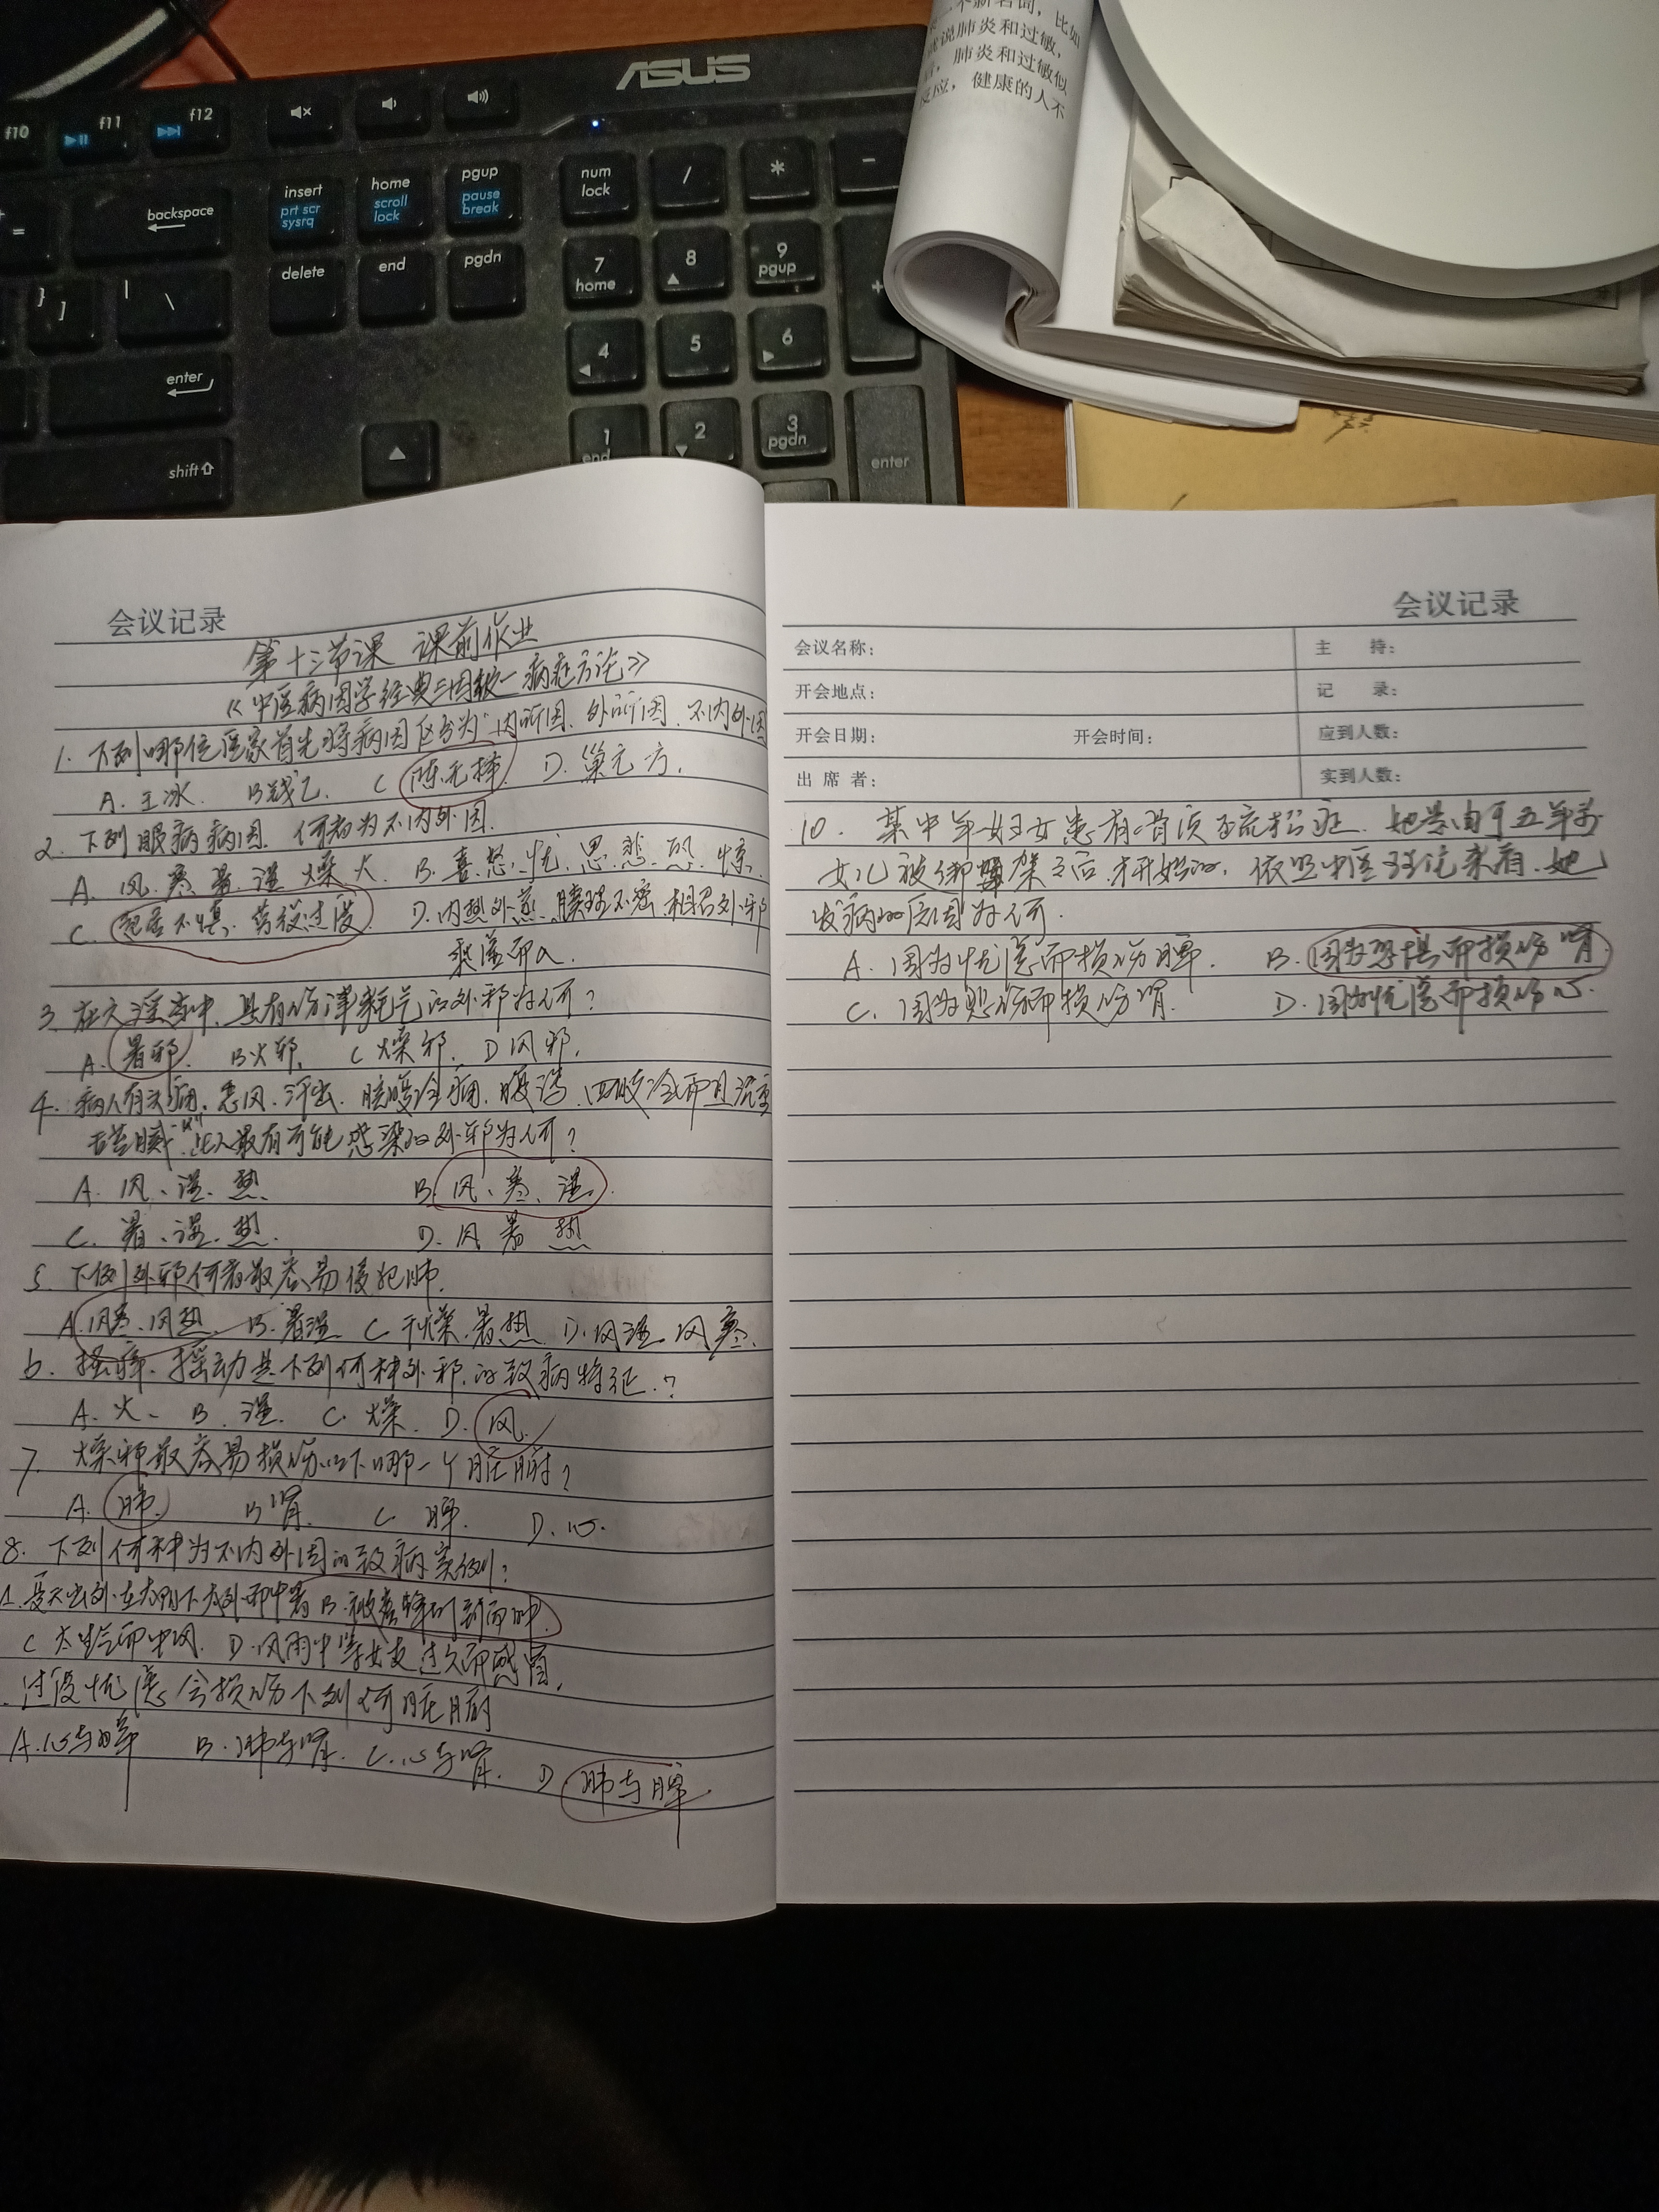 ASUS
f10
f11
f12
backspace
insert
prt scr
sysrq
home
scroll
lock
pgup
pause
break
num
lock
/
*
-
=
delete
end
pgdn
7
home
8
9
pgup
+
}
]
|
\
4
5
6
enter
1
end
2
3
pgdn
enter
shift
个新名词，比如
说肺炎和过敏，
肺炎和过敏似
反应，健康的人不
会议记录
第十三节课 课前作业
《中医病因学经典三因极一病症方论》
1. 下列哪位医家首先将病因区分为内所因、外所因、不内外因
A. 王冰. B 钱乙. C 陈无择. D. 巢元方.
2. 下列眼病病因. 何者为不内外因.
A. 风. 寒. 暑. 湿 燥 火. B. 喜. 怒. 忧. 思. 悲. 恐. 惊.
C. 起居不慎, 药役过度 D. 内热外蒸. 腠理不密. 相召外邪
乘虚而入.
3. 在六淫当中. 具有伤津耗气的外邪为何?
A. 暑邪. B 火邪. C 燥邪. D 风邪.
4. 病人有头痛. 恶风. 汗出. 脘腹冷痛. 腹泻. 四肢冷而且沉重
舌苔腻. 此人最有可能感染的外邪为何?
A. 风、湿、热. B. 风、寒、湿.
C. 暑、湿、热. D. 风 暑 热
5. 下列外邪何者最容易侵犯肺.
A. 风寒. 风热. B. 暑湿 C. 干燥. 暑热. D. 风湿. 风寒.
6. 搔痒. 摇动是下列何种外邪. 的致病特征.?
A. 火. B. 湿. C. 燥. D. 风.
7. 燥邪最容易损伤以下哪一个脏腑?
A. 肺. B 肾. C. 脾. D. 心.
8. 下列何种为不内外因的致病实例?
夏天出外在太阳下 中暑 B. 被蜜蜂叮到而肿.
C 太生气而中风. D. 风雨中等女友过久而感冒.
过度忧虑会损伤下列何脏腑
A. 心与脾 B. 肺与肾. C. 心与肾. D 肺与脾.
会议记录
会议名称： 主 持：
开会地点： 记 录：
开会日期： 开会时间： 应到人数：
出 席 者： 实到人数：
10. 某中年妇女患有 症. 她是由于五年前
女儿被绑架之后. 才开始的. 依照中医理论来看. 她
发病的原因为何.
A. 因为忧虑而损伤脾. B. 因为恐惧而损伤肾
C. 因为悲伤而损伤肾. D. 因为忧虑而损伤心.